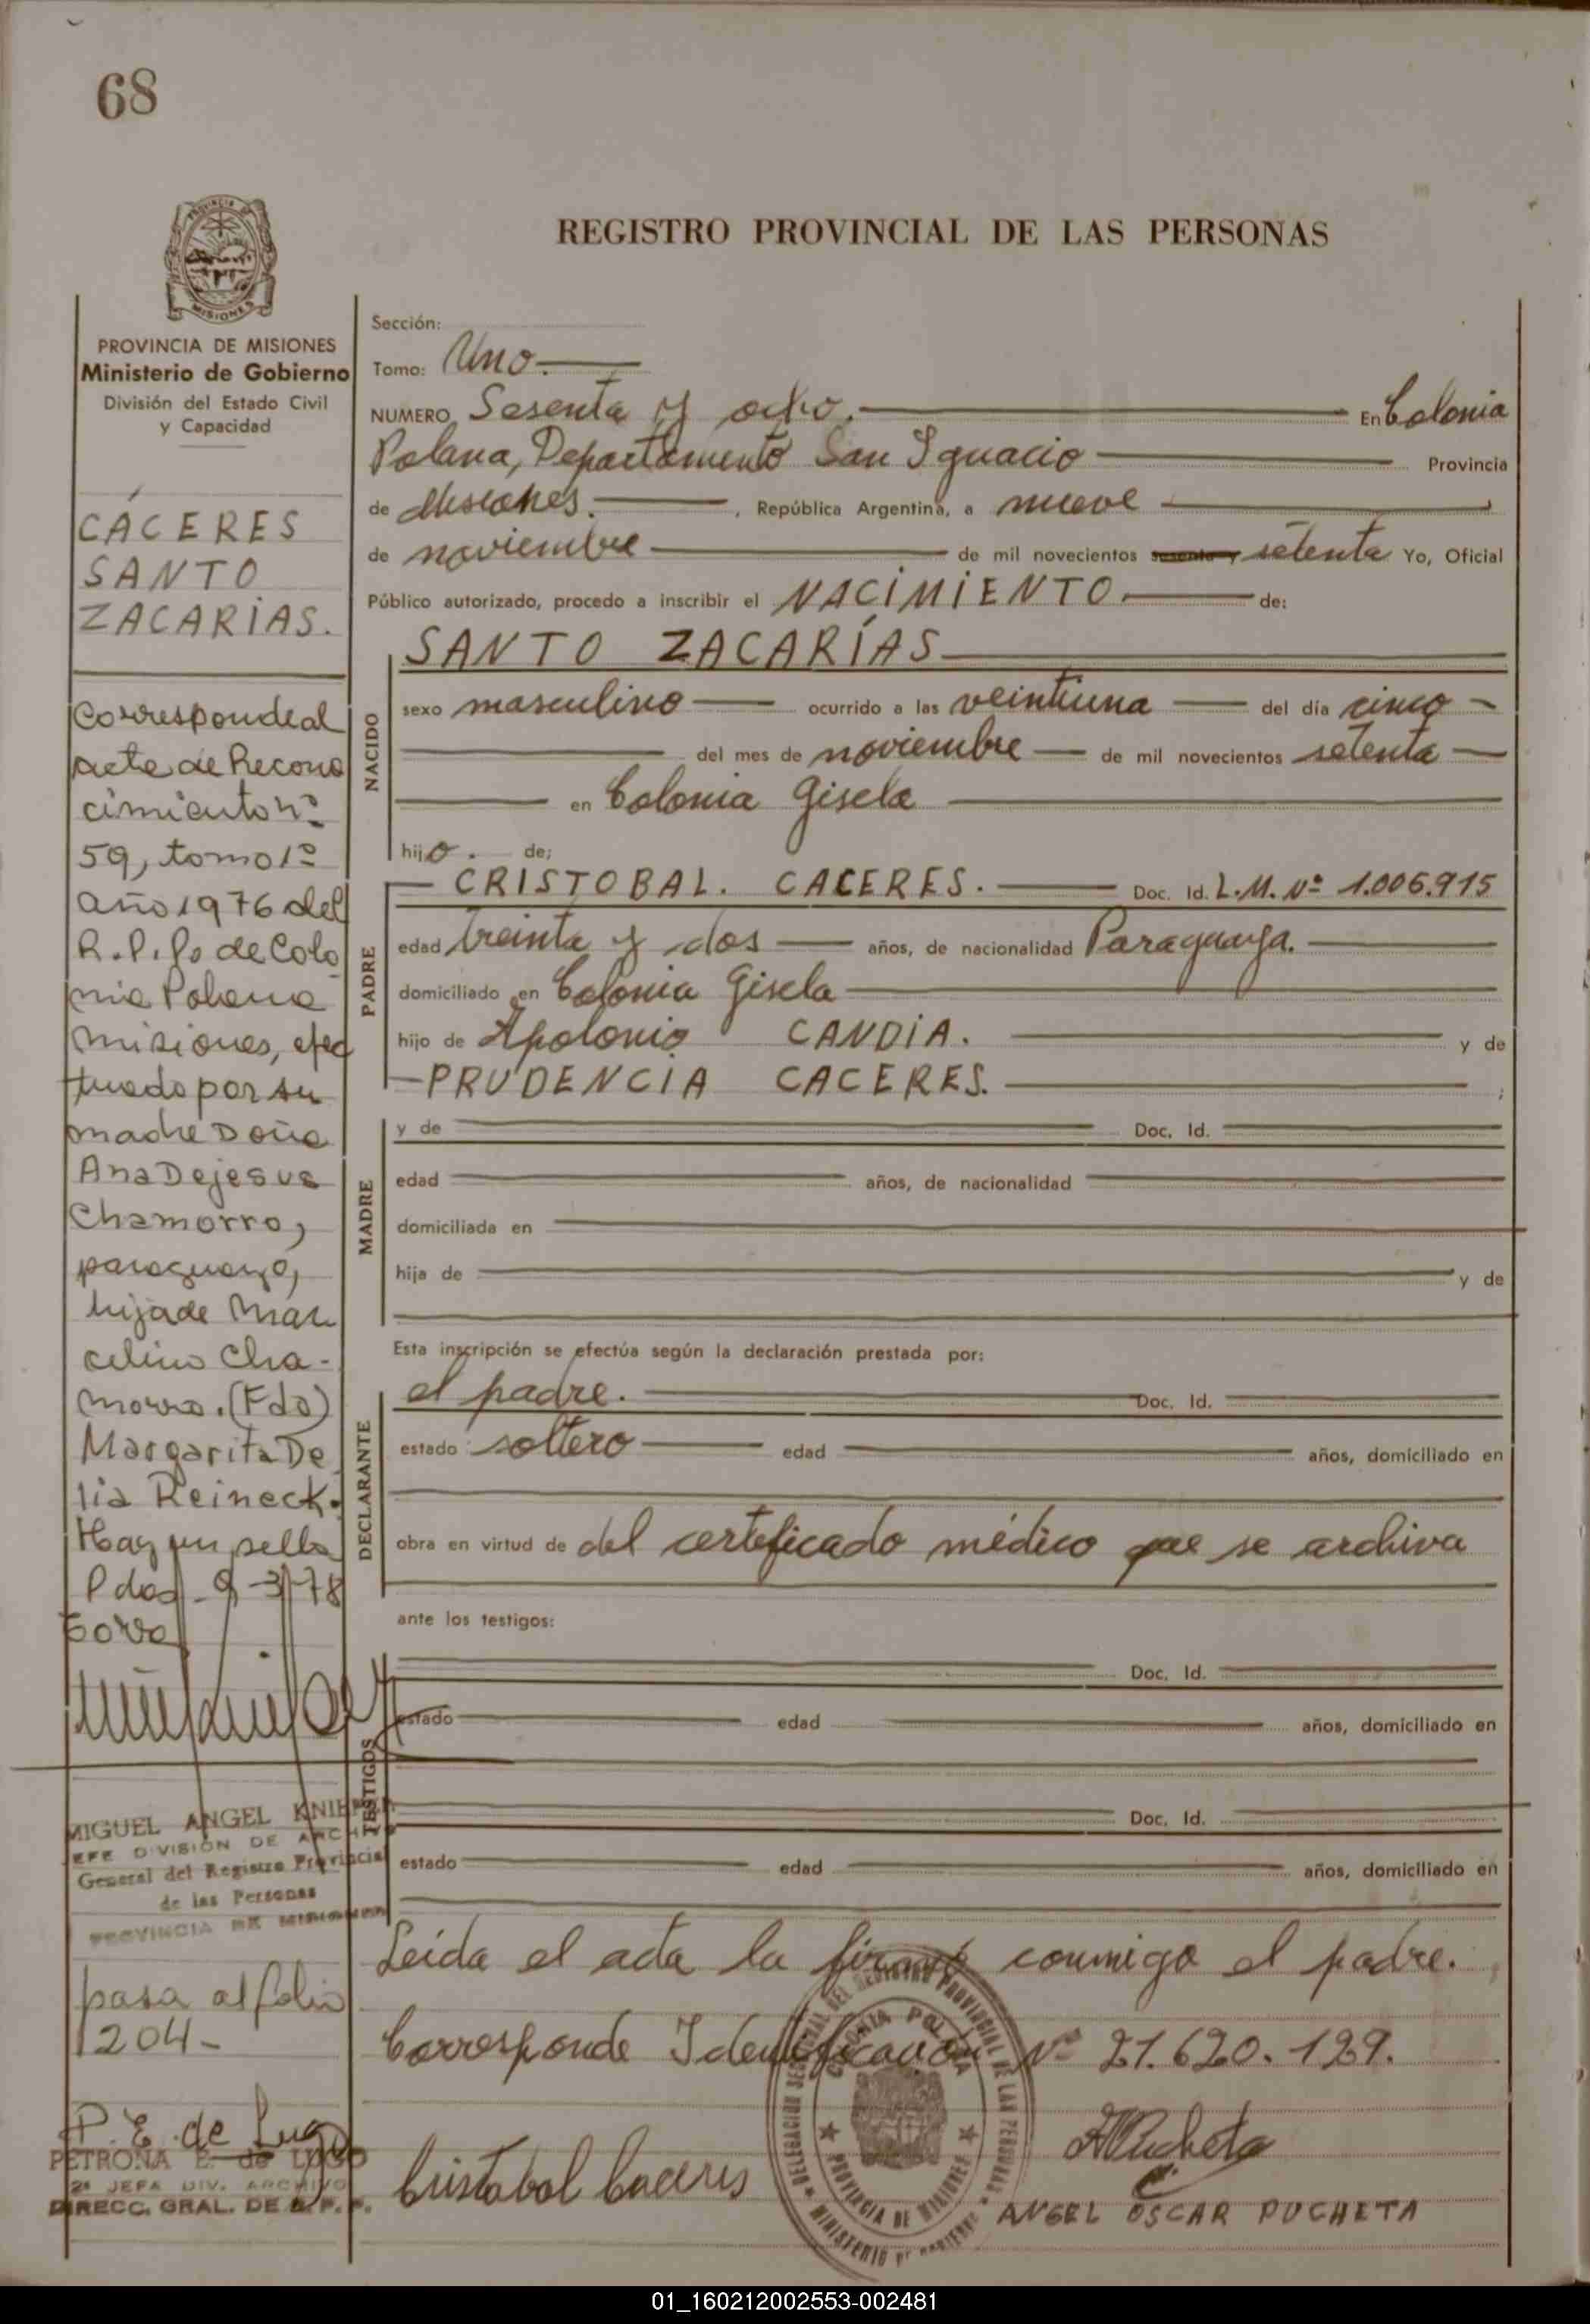 68
PROVINCIA DE MISIONES
Ministerio de Gobierno
División del Estado Civil
y Capacidad
CÁCERES
SANTO
ZACARÍAS.
Corresponde al
acta de Recono
cimiento nº
59, tomo 1º
año 1976 del
R.P.Ps de Colo
nia Polana
misiones, efec
tuado por su
madre Doña
Ana Dejesus
Chamorro,
paraguaya,
hija de Mar
celino Cha-
morro. (Fdo)
Margarita De
lia Reineck.
Hay un sello
Pdas - 9-3-78
MIGUEL ANGEL
JEFE DIVISIÓN DE ARCHIVO
General del Registro Provincial
de las Personas
PROVINCIA DE MISIONES
pasa al folio
204-
P. E. de Lugo
PETRONA E. de LUGO
2ª JEFA DIV. ARCHIVO
DIRECC. GRAL. DE R. P. P.
REGISTRO PROVINCIAL DE LAS PERSONAS
Sección:
Tomo: Uno.
NUMERO Sesenta y ocho. En Colonia
Polana, Departamento San Ignacio Provincia
de Misiones. , República Argentina, a nueve
de noviembre de mil novecientos sesenta y setenta Yo, Oficial
Público autorizado, procedo a inscribir el NACIMIENTO. de:
NACIDO
SANTO ZACARÍAS
sexo masculino ocurrido a las veintiuna del día cinco
del mes de noviembre de mil novecientos setenta
en Colonia Gisela
hijo. de;
PADRE
CRISTOBAL. CACERES. Doc. Id. L.M. Nº 1.006.915
edad treinta y dos años, de nacionalidad Paraguaya.
domiciliado en Colonia Gisela
hijo de Apolonio CANDIA. y de
PRUDENCIA CACERES. ;
MADRE
y de Doc. Id.
edad años, de nacionalidad
domiciliada en
hija de y de
Esta inscripción se efectúa según la declaración prestada por:
DECLARANTE
el padre. Doc. Id.
estado soltero edad años, domiciliado en
obra en virtud de del certificado médico que se archiva
ante los testigos:
TESTIGOS
Doc. Id.
estado edad años, domiciliado en
Doc. Id.
estado edad años, domiciliado en
Leída el acta la firma conmigo el padre.
Corresponde Identificación Nº 21.620.129.
DELEGACION SECCIONAL DEL REGISTRO PROVINCIAL DE LAS PERSONAS
COLONIA POLANA
PROVINCIA DE MISIONES
MINISTERIO DE GOBIERNO
Cristobal Caceres
APucheta
ANGEL OSCAR PUCHETA
01_160212002553-002481